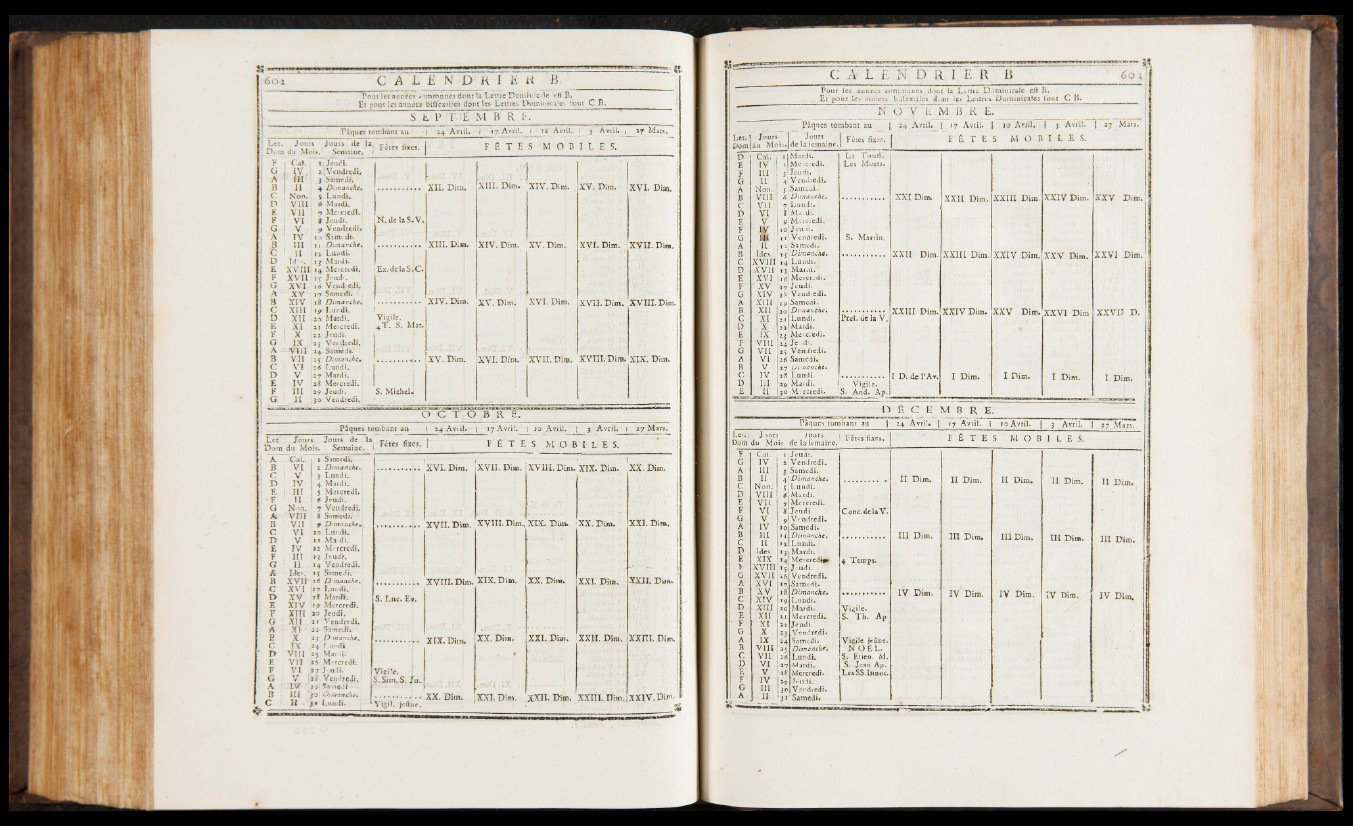 602 CALENDRIER B
Pour les années communes dont la Lettre Dominicale est B,
Et pour les années bissextiles dont les Lettres Dominicales sont C B.
SEPTEMBRE.
Pâques tombant au 24 Avril. 17 Avril. 10 Avril. 3 Avril. 27 Mars.
Let. Jours Jours de la Fêtes fixes. FÊTES MOBILES.
Dom du Mois. Semaine.
F Cal. 1 Jeudi.
G IV 2 Vendredi.
A III 3 Samedi.
B II 4 Dimanche. ........... XII. Dim. XIII. Dim. XIV. Dim. XV. Dim. XVI. Dim.
C Non. 5 Lundi.
D VIII 6 Mardi.
E VII 7 Mercredi.
F VI 8 Jeudi. N. de la S. V.
G V 9 Vendredi.
A IV 10 Samedi.
B III 11 Dimanche. ........... XIII. Dim. XIV. Dim. XV. Dim. XVI. Dim. XVII. Dim.
C II 12 Lundi.
D Ides. 13 Mardi.
E XVIII 14 Mercredi. Ex. de la S. C.
F XVII 15 Jeudi.
G XVI 16 Vendredi.
A XV 17 Samedi.
B XIV 18 Dimanche. ........... XIV. Dim. XV. Dim. XVI. Dim. XVII. Dim. XVIII. Dim.
C XIII 19 Lundi.
D XII 20 Mardi. Vigile.
E XI 21 Mercredi. 4 T. S. Mat.
F X 22 Jeudi.
G IX 23 Vendredi.
A VIII 24 Samedi.
B VII 25 Dimanche. ........... XV. Dim. XVI. Dim. XVII. Dim. XVIII. Dim. XIX. Dim.
C VI 26 Lundi.
D V 27 Mardi.
E IV 28 Mercredi.
F III 29 Jeudi. S. Michel.
G II 30 Vendredi.
OCTOBRE.
Pâques tombant au 24 Avril. 17 Avril. 10 Avril. 3 Avril. 27 Mars.
Let. Jours Jours de la Fêtes fixes. FÊTES MOBILES.
Dom du Mois. Semaine.
A Cal. 1 Samedi.
B VI 2 Dimanche. ........... XVI. Dim. XVII. Dim. XVIII. Dim. XIX. Dim. XX. Dim.
C V 3 Lundi.
D IV 4 Mardi.
E III 5 Mercredi.
F II 6 Jeudi.
G Non. 7 Vendredi.
A VIII 8 Samedi.
B VII 9 Dimanche. ........... XVII. Dim. XVIII. Dim. XIX. Dim. XX. Dim. XXI. Dim.
C VI 10 Lundi.
D V 11 Mardi.
E IV 12 Mercredi.
F III 13 Jeudi.
G II 14 Vendredi.
A Ides. 15 Samedi.
B XVII 16 Dimanche. ........... XVIII. Dim. XIX. Dim. XX. Dim. XXI. Dim. XXII. Dim.
C XVI 17 Lundi.
D XV 18 Mardi. S. Luc. Ev.
E XIV 19 Mercredi.
F XIII 20 Jeudi.
G XII 21 Vendredi.
A XI 22 Samedi.
B X 23 Dimanche. ........... XIX. Dim. XX. Dim. XXI. Dim. XXII. Dim. XXIII. Dim.
C IX 24 Lundi
D VIII 25 Mardi.
E VII 26 Mercredi.
F VI 27 Jeudi. Vigile.
G V 28 Vendredi. S. Sim. S. Ju.
A IV 29 Samedi
B III 30 Dimanche. ........... XX. Dim. XXI. Dim. XXII. Dim. XXIII. Dim. XXIV. Dim.
C II 31 Lundi. Vigil. jeûne.
CALENDRIER B 603
Pour les années communes dont la Lettre Dominicale est B,
Et pour les années bissextiles dont les Lettres Dominicales sont C B.
NOVEMBRE.
Pâques tombant au 24 Avril. 17 Avril. 10 Avril. 3 Avril. 27 Mars.
Let. Jours Jours Fêtes fixes. FÊTES MOBILES.
Dom du Mois. de la semaine.
D Cal. 1 Mardi. La Touss.
E IV 2 Mercredi. Les Morts.
F III 3 Jeudi.
G II 4 Vendredi.
A Non. 5 Samedi.
B VIII 6 Dimanche. ........... XXI Dim. XXII Dim. XXIII Dim. XXIV Dim. XXV Dim.
C VII 7 Lundi.
D VI 8 Mardi.
E V 9 Mercredi.
F IV 10 Jeudi.
G III 11 Vendredi. S. Martin.
A II 12 Samedi.
B Ides 13 Dimanche. ........... XXII Dim. XXIII Dim. XXIV Dim. XXV Dim. XXVI Dim.
C XVIII 14 Lundi.
D XVII 15 Mardi.
E XVI 16 Mercredi.
F XV 17 Jeudi.
G XIV 18 Vendredi.
A XIII 19 Samedi.
B XII 20 Dimanche. ........... XXIII Dim. XXIV Dim. XXV Dim. XXVI Dim XXVII D.
C XI 21 Lundi. Prés. de la V.
D X 22 Mardi.
E IX 23 Mercredi.
F VIII 24 Jeudi.
G VII 25 Vendredi.
A VI 26 Samedi.
B V 27 Dimanche.
C IV 28 Lundi. ........... I D. de l'Av. I Dim. I Dim. I Dim. I Dim.
D III 29 Mardi. Vigile.
E II 30 Mercredi. S. And. Ap.
DÉCEMBRE.
Pâques tombant au 24 Avril. 17 Avril. 10 Avril. 3 Avril. 27 Mars.
Let. Jours Jours Fêtes fixes. FÊTES MOBILES.
Dom du Mois de la semaine.
F Cal. 1 Jeudi.
G IV 2 Vendredi.
A III 3 Samedi.
B II 4 Dimanche. ........... II Dim. II Dim. II Dim. II Dim. II Dim.
C Non. 5 Lundi.
D VIII 6 Mardi.
E VII 7 Mercredi.
F VI 8 Jeudi. Conc. de la V.
G V 9 Vendredi.
A IV 10 Samedi.
B III 11 Dimanche. ........... III Dim. III Dim. III Dim. III Dim. III Dim.
C II 12 Lundi.
D Ides 13 Mardi.
E XIX 14 Mercredi. 4 Temps.
F XVIII 15 Jeudi.
G XVII 16 Vendredi.
A XVI 17 Samedi.
B XV 18 Dimanche. ........... IV Dim. IV Dim. IV Dim. IV Dim. IV Dim.
C XIV 19 Lundi.
D XIII 20 Mardi. Vigile.
E XII 21 Mercredi. S. Th. Ap
F XI 22 Jeudi.
G X 23 Vendredi.
A IX 24 Samedi. Vigile jeûne.
B VIII 25 Dimanche. NOEL.
C VII 26 Lundi. S. Etien. M.
D VI 27 Mardi. S. Jean Ap.
E V 28 Mercredi. Les SS. Innoc.
F IV 29 Jeudi.
G III 30 Vendredi.
A II 31 Samedi.